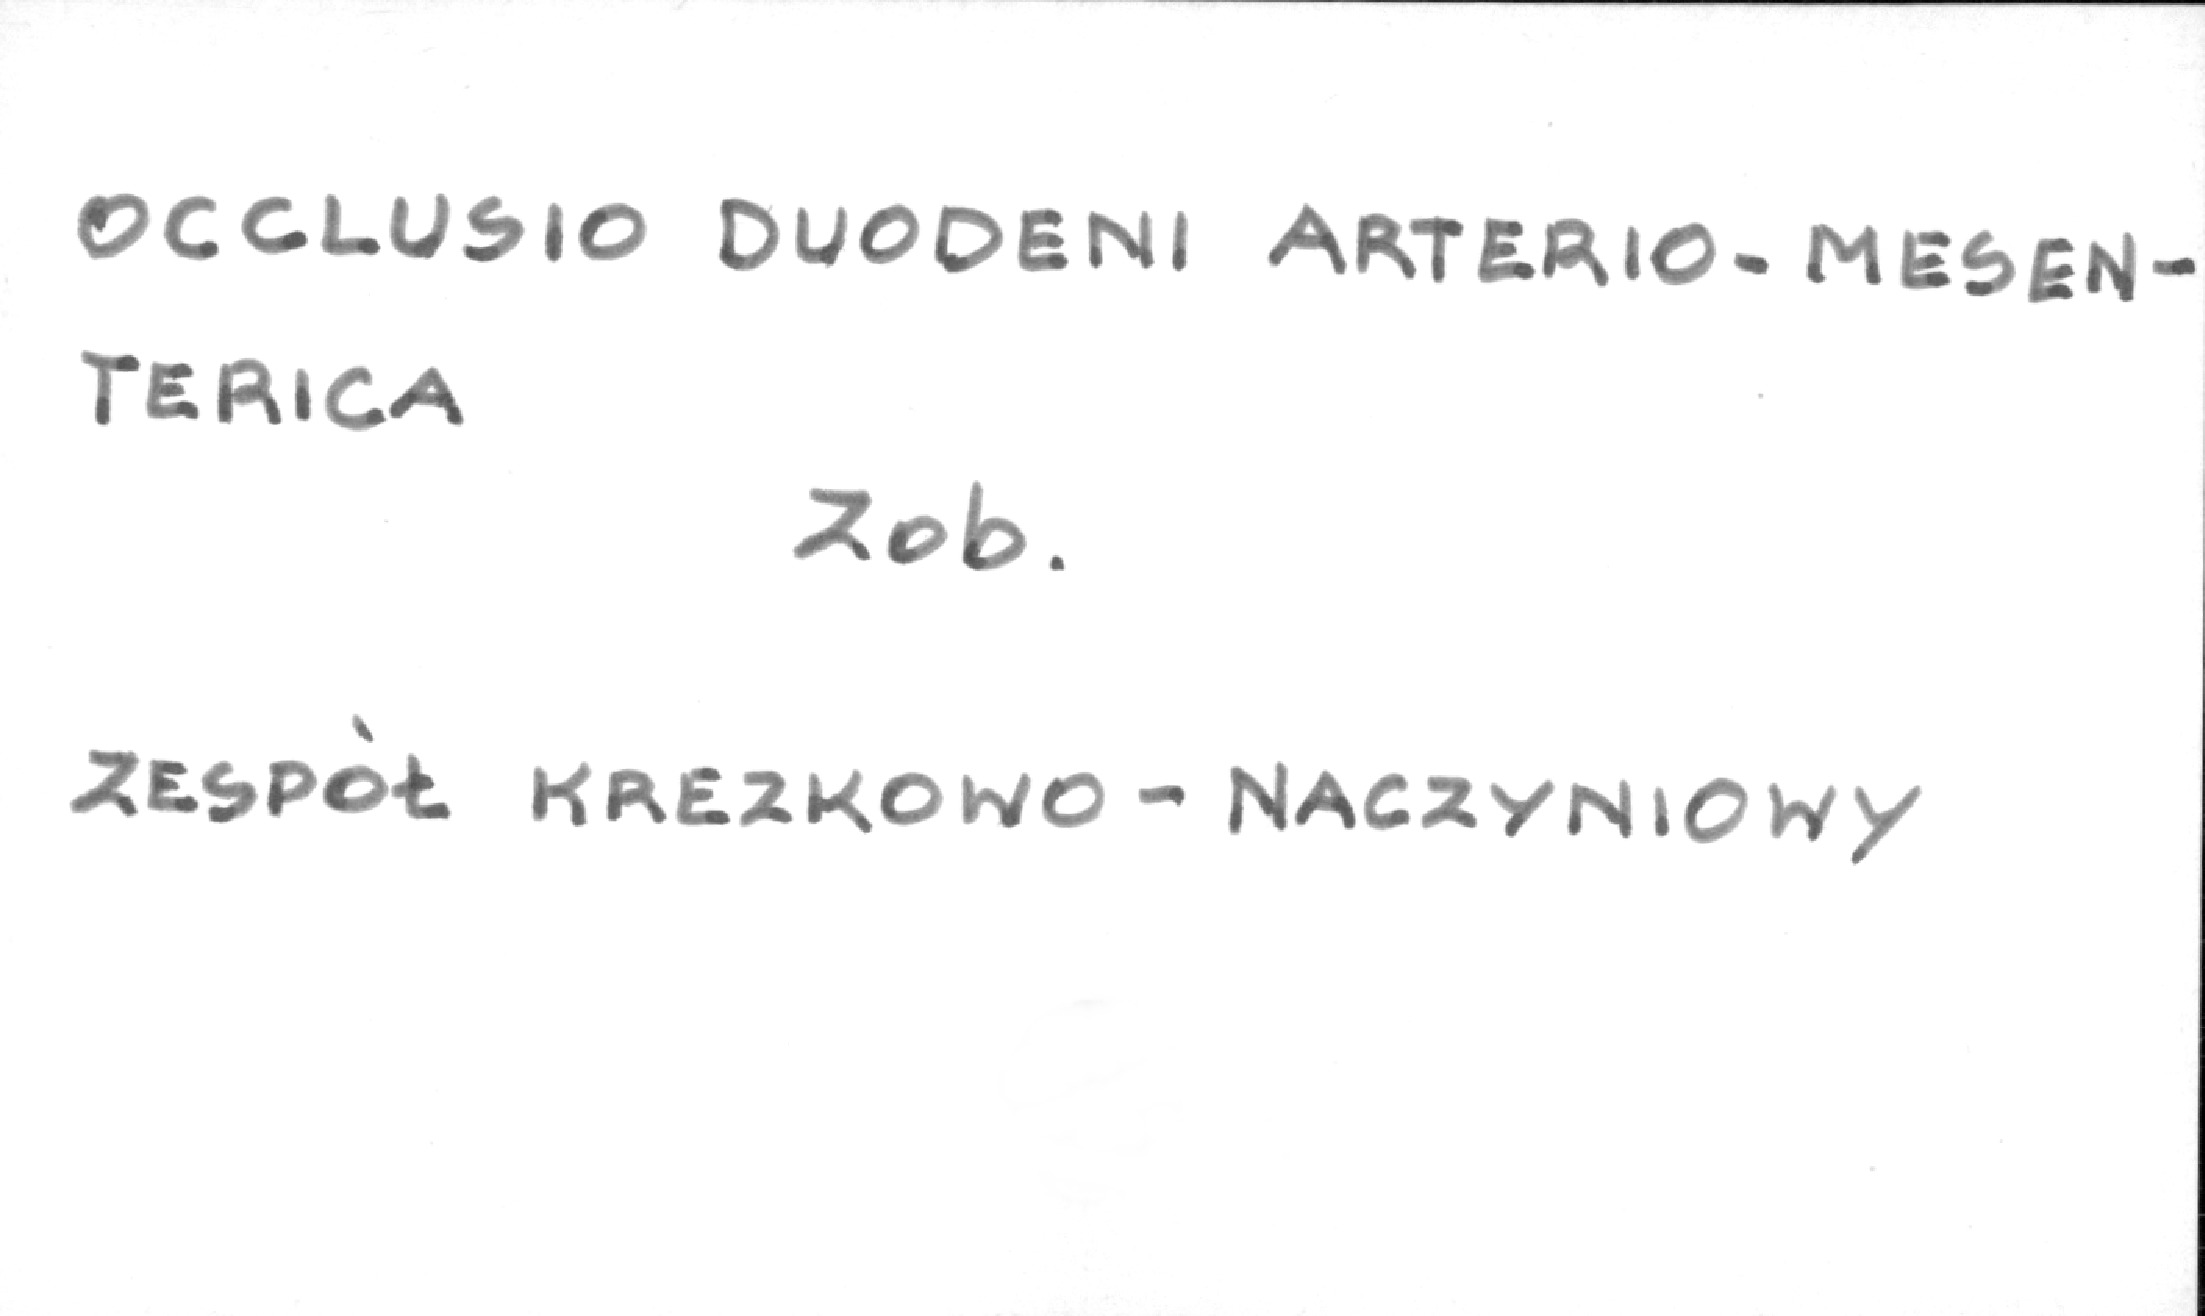 OCCLUSIO DUODENI ARTERIO-MESEN-
TERICA
Zob.
ZESPÒŁ KREZKOWO-NACZYNIOWY